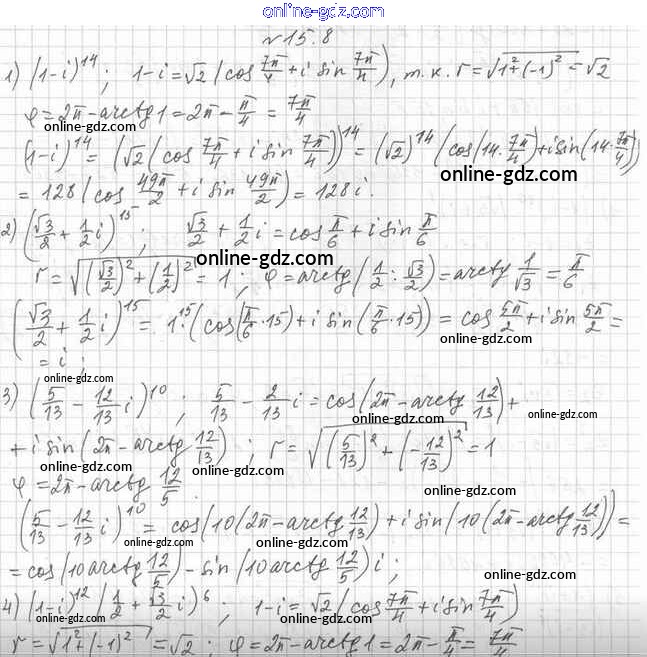 online-gdz.com
№15.8
1) (1-i)^14; 1-i=√2(cos 7π/4 + i sin 7π/4), т.к. r=√(1²+(-1)²)=√2
φ=2π-arctg1=2π-π/4=7π/4
online-gdz.com
(1-i)^14=(√2(cos 7π/4 + i sin 7π/4))^14=(√2)^14(cos(14·7π/4)+i sin(14·7π/4))
online-gdz.com
=128(cos 49π/2 + i sin 49π/2)=128i.
2) (√3/2+1/2i)^15; √3/2+1/2i=cos π/6+i sin π/6
online-gdz.com
r=√((√3/2)²+(1/2)²)=1; φ=arctg(1/2:√3/2)=arctg 1/√3=π/6
(√3/2+1/2i)^15=1^15·(cos(π/6·15)+i sin(π/6·15))=cos 5π/2+i sin 5π/2=
online-gdz.com
=i;
online-gdz.com
3) (5/13-12/13i)^10; 5/13-2/13i=cos(2π-arctg 12/13)+
online-gdz.com
online-gdz.com
online-gdz.com
+i sin(2π-arctg 12/13); r=√((5/13)²+(-12/13)²)=1
online-gdz.com
online-gdz.com
φ=2π-arctg 12/5.
online-gdz.com
(5/13-12/13i)^10=cos(10(2π-arctg 12/13)+i sin(10(2π-arctg 12/13))=
online-gdz.com
online-gdz.com
=cos(10arctg 12/5)-sin(10arctg 12/5)i;
online-gdz.com
4) (1-i)^12(1/2+√3/2i)^6; 1-i=√2(cos 7π/4+i sin 7π/4)
online-gdz.com
online-gdz.com
r=√(1²+(-1)²)=√2; φ=2π-arctg1=2π-π/4=7π/4
online-gdz.com